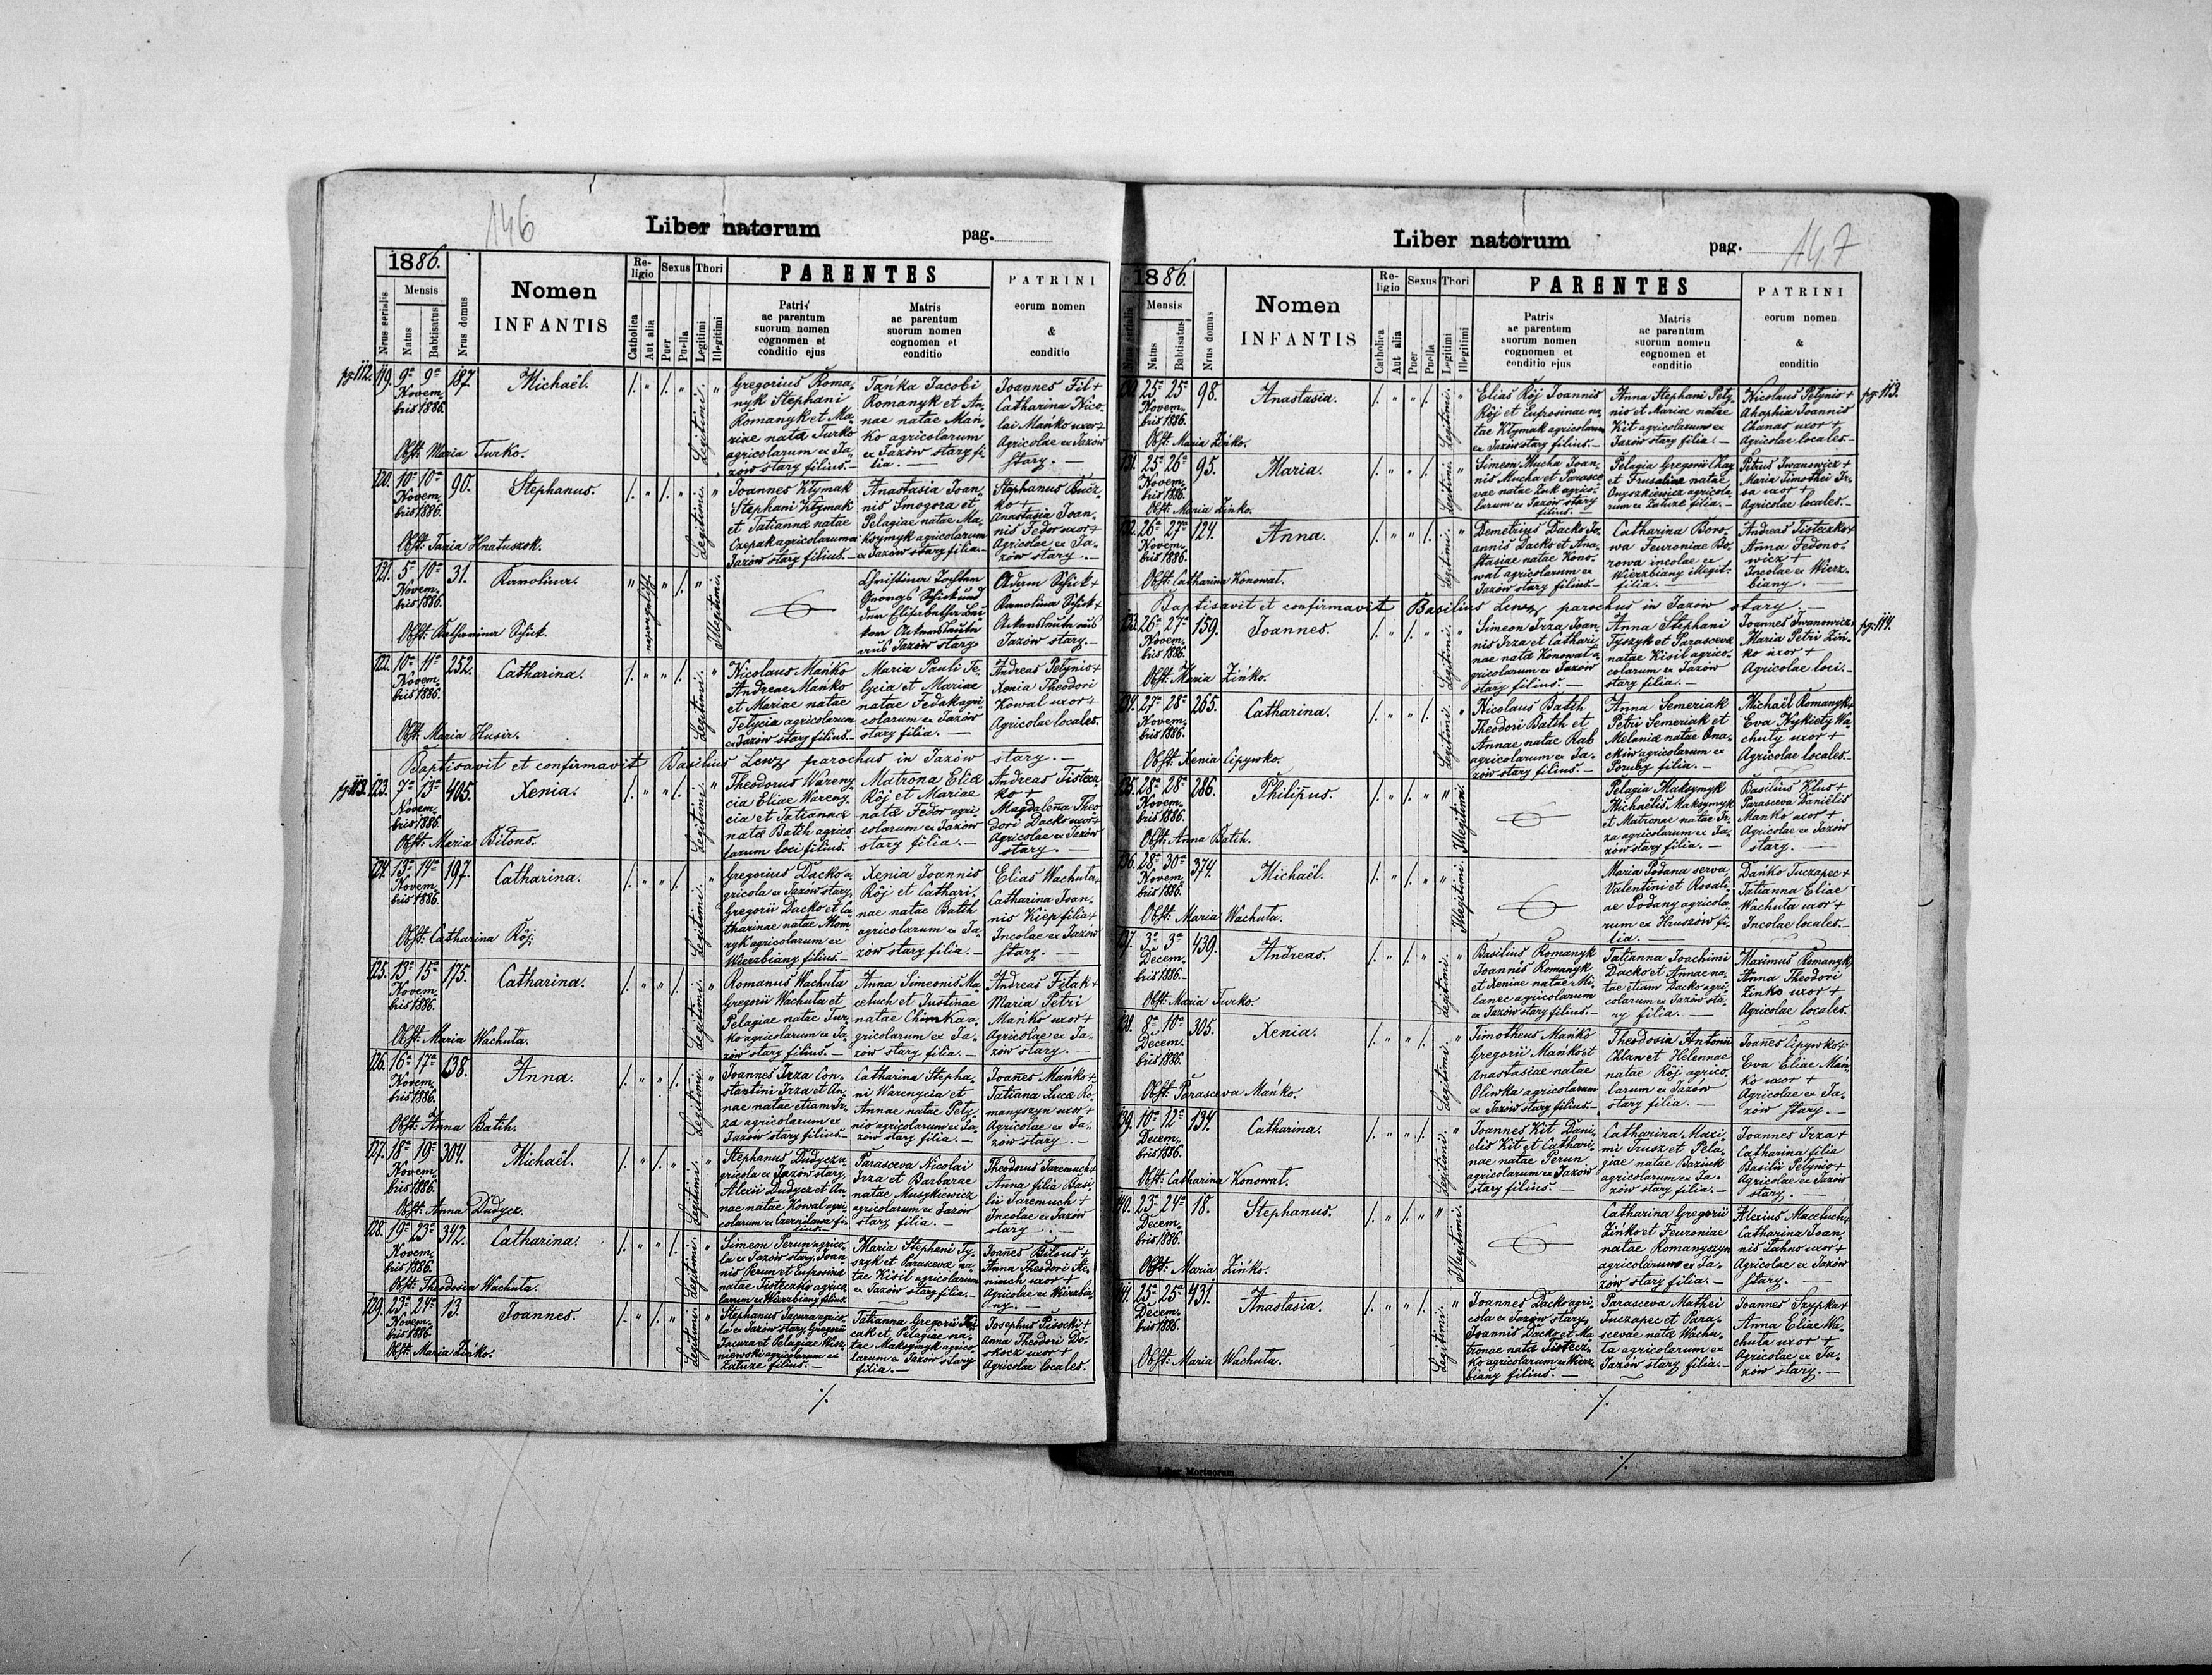 146
Liber natorum
pag.
1886.
Nrus serialis
Mensis
Natus
Babtisatus
Nrus domus
Nomen
INFANTIS
Re-
ligio
Catholica
Aut alia
Sexus
Puer
Puella
Thori
Legitimi
Illegitimi
PARENTES
Patris
ac parentum
suorum nomen
cognomen et
conditio ejus
Matris
ac parentum
suorum nomen
cognomen et
conditio
PATRINI
eorum nomen
&
conditio
pg. 112.
119. 9a 9a 187. Michaël.
Novem-
bris 1886.
Obst: Maria Turko.
Legitimi.
Gregorius Roma-
nyk Stephani
Romanyk et Ma-
riae natae Turko
agricolarum ex Ja-
zów stary filius.—
Tańka Jacobi
Romanyk et An-
nae natae Mań-
ko agricolarum
ex Jazów stary fi-
lia.—
Joannes Fil +
Catharina Nico-
lai Mańko uxor +
Agricolae ex Jazów
stary.—
120. 10a 10a 90. Stephanus.
Novem-
bris 1886.
Obst: Tania Hnatuszok.
Legitimi.
Joannes Kłymak
Stephani Kłymak
et Tatianna natae
Czepak agricolarum ex
Jazów stary filius.—
Anastasia Joan-
nis Smogora et
Pelagiae natae Ma-
ksymyk agricolarum
ex Jazów stary filia.—
Stephanus Bucz-
ko +
Anastasia Joan-
nis Fedor uxor +
Agricolae ex Ja-
zów stary.—
121. 5a 10a 31. Karolina.
Novem-
bris 1886.
Obst: Katharina Schick.
Illegitimi.
Christina Tochter
Georgs Schick und
den Elisabetha
Ackersleute
aus Jazów stary
Adam Schick +
Karolina Schick +
Ackersleute aus
Jazów stary.—
122. 10a 11a 252. Catharina.
Novem-
bris 1886.
Obst: Maria Husir.
Legitimi.
Nicolaus Mańko
Andreae Mańko
et Mariae natae
Telycia agricolarum
ex Jazów stary filius.—
Maria Pauli Te-
lycia et Mariae
natae Fedak agri-
colarum ex Jazów
stary filia.—
Andreas Petynio +
Xenia Theodori
Kowal uxor +
Agricolae locales.
Baptisavit et confirmavit Basilius Lewz parochus in Jazów stary.—
pg. 113.
123. 7a 13a 405. Xenia.
Novem-
bris 1886.
Obst: Maria Biłous.
Legitimi.
Theodorus Wareny-
cia Eliae Wareny-
cia et Tatianna
natae Batih agrico-
larum loci filius.
Matrona Eliae
Rój et Mariae
natae Fedor agri-
colarum ex Jazów
stary filia.—
Andreas Tistecz-
ko +
Magdalena Theo-
dori Dacko uxor +
Agricolae ex Jazów
stary.—
124. 13a 14a 197. Catharina.
Novem-
bris 1886.
Obst: Catharina Rój.
Legitimi.
Gregorius Dacko a-
gricola ex Jazów stary,
Gregorii Dacko et Ca-
tharinae natae Hom-
zyk agricolarum ex
Wierzbiany filius.—
Xenia Joannis
Rój et Cathari-
nae natae Batih
agricolarum ex Ja-
zów stary filia.—
Elias Wachuta +
Catharina Joan-
nis Kiep filia +
Incolae ex Jazów
stary.—
125. 13a 15a 175. Catharina.
Novem-
bris 1886.
Obst: Maria Wachuta.
Legitimi.
Romanus Wachuta
Gregorii Wachuta et
Pelagiae natae Tur-
ko agricolarum ex Ja-
zów stary filius.—
Anna Simeonis Ma-
celuch et Justinae
natae Chomka a-
gricolarum ex Ja-
zów stary filia.—
Andreas Fitak +
Maria Petri
Mańko uxor +
Agricolae ex Ja-
zów stary.—
126. 16a 17a 138. Anna.
Novem-
bris 1886.
Obst: Anna Batih.
Legitimi.
Joannes Irza Con-
stantini Irza et An-
nae natae etiam Ir-
za agricolarum ex
Jazów stary filius.—
Catharina Stepha-
ni Warenycia et
Annae natae Pety-
nio agricolarum ex Ja-
zów stary filia.—
Joañes Mańko +
Tatiana Lucae Ro-
manyszyn uxor +
Agricolae ex Ja-
zów stary.—
127. 18a 19a 304. Michaël.
Novem-
bris 1886.
Obst: Anna Dudycz.
Legitimi.
Stephanus Dudycz a-
gricola ex Jazów stary,
Alexii Dudycz et An-
nae natae Kowal agri-
colarum ex Czernilawa fi-
lius.—
Parasceva Nicolai
Irza et Barbarae
natae Musykiewicz
agricolarum ex Jazów
stary filia.—
Theodorus Jaremuch +
Anna filia Basi-
lii Jaremuch +
Incolae ex Jazów
stary.—
128. 19a 23a 342. Catharina.
Novem-
bris 1886.
Obst: Theodosia Wachuta.
Legitimi.
Simeon Perun agrico-
la ex Jazów stary, Joan-
nis Perun et Eufrosinae
natae Tisteczko agrico-
larum ex Wierzbiany filius.
Maria Stephani Ty-
szyk et Parascevae na-
tae Kisil agricolarum
ex Jazów stary filia.—
Joañes Biłous +
Anna Theodori
uxor +
Agricolae ex Wierzbia-
ny.—
129. 23a 24a 13. Joannes.
Novem-
bris 1886.
Obst: Maria Zińko.
Legitimi.
Stephanus Jacura agrico-
la ex Jazów stary, Gregorii
Jacura et Pelagiae Wisz-
niewski agricolarum ex
Załuże filius.—
Tatianna Gregorii
et Pelagiae na-
tae Maksymyk agrico-
larum ex Jazów stary
filia.—
Josephus Pisocki +
Anna Theodori Do-
skocz uxor +
Agricolae locales.
./.
Liber natorum
pag. 147
1886.
Nrus serialis
Mensis
Natus
Babtisatus
Nrus domus
Nomen
INFANTIS
Re-
ligio
Catholica
Aut alia
Sexus
Puer
Puella
Thori
Legitimi
Illegitimi
PARENTES
Patris
ac parentum
suorum nomen
cognomen et
conditio ejus
Matris
ac parentum
suorum nomen
cognomen et
conditio
PATRINI
eorum nomen
&
conditio
130. 25a 25a 98. Anastasia.
Novem-
bris 1886.
Obst: Maria Zińko.
Legitimi.
Elias Rój Joannis
Rój et Eufrosinae na-
tae Kłymak agricolarum
ex Jazów stary filius.—
Anna Stephani Pety-
nio et Mariae natae
Kit agricolarum ex
Jazów stary filia.—
Nicolaus Petynio +
Ahaphia Joannis
Chanas uxor +
Agricolae locales.—
pg. 113.
131. 25a 26a 95. Maria.
Novem-
bris 1886.
Obst: Maria Zinko.
Legitimi.
Simeon Mucha Joan-
nis Mucha et Parasce-
vae natae Żuk agrico-
larum ex Jazów stary
filius.—
Pelagia Gregorii
et natae
Onyszkiewicz agricola-
rum ex Załuże filia.—
Petrus Iwanowicz +
Maria Timothei Ir-
za uxor +
Agricolae locales.—
132. 26a 27a 124. Anna.
Novem-
bris 1886.
Obst: Catharina Konowat.
Legitimi.
Demetrius Dacko Jo-
annis Dacko et Ana-
stasiae natae Kono-
wat agricolarum ex
Jazów stary filius.—
Catharina Boro-
wa Feuroniae Bo-
rowa incolae ex
Wierzbiany illegit:
filia.—
Andreas Tisteczko +
Anna Fedono-
wicz +
Incolae ex Wierz-
biany.—
Baptisavit et confirmavit Basilius Lewz parochus in Jazów stary.—
133. 26a 27a 159. Joannes.
Novem-
bris 1886.
Obst: Maria Zińko.
Legitimi.
Simeon Irza Joan-
nis Irza et Cathari-
nae natae Konowat a-
gricolarum ex Jazów
stary filius.—
Anna Stephani
Tyszyk et Parascevae
natae Kisil agrico-
colarum ex Jazów
stary filia.—
Joannes Iwanowicz +
Maria Petri Ziń-
ko uxor +
Agricolae loci.—
pg. 114.
134. 27a 28a 265. Catharina.
Novem-
bris 1886.
Obst: Xenia Lipywko.
Legitimi.
Nicolaus Batih
Theodori Batih et
Annae natae Rab
agricolarum ex Ja-
zów stary filius.—
Anna Semeriak
Petri Semeriak et
Melaniae natae Ona-
ckiw agricolarum ex
Poruby filia.—
Michaël Romanyk +
Eva Nykiety Wa-
chuty uxor +
Agricolae locales.—
135. 28a 28a 286. Philippus.
Novem-
bris 1886.
Obst: Anna Batih.
Illegitimi.
Pelagia Maksymyk
Michaëlis Maksymyk
et Matronae natae Ir-
za agricolarum ex Ja-
zów stary filia.—
Basilius Klus +
Parasceva Daniëlis
Mańko uxor +
Agricolae ex Jazów
stary.—
136. 28a 30a 374. Michaël.
Novem-
bris 1886.
Obst: Maria Wachuta.
Illegitimi.
Maria Podana serva
Valentini et Rosali-
ae Podany agricola-
rum ex Hruszów fi-
lia.—
Dańko Tuczapec +
Tatianna Eliae
Wachuta uxor +
Incolae locales.—
137. 3a 3a 439. Andreas.
Decem-
bris 1886.
Obst: Maria Turko.
Legitimi.
Basilius Romanyk
Joannis Romanyk
et Xeniae natae Mi-
lanec agricolarum
ex Jazów stary filius.—
Tatianna Joachimi
Dacko et Annae na-
tae etiam Dacko agri-
colarum ex Jazów sta-
ry filia.—
Maximus Romanyk +
Anna Theodori
Zinko uxor +
Agricolae locales.
138. 8a 10a 305. Xenia.
Decem-
bris 1886.
Obst: Parasceva Mańko.
Legitimi.
Timotheus Mańko
Gregorii Mańko et
Anastasiae natae
Oliwka agricolarum
ex Jazów stary filius.—
Theodosia Antonii
Chlan et Helennae
natae Rój agrico-
larum ex Jazów
stary filia.—
Joañes Lipywko +
Eva Eliae Mań-
ko uxor +
Agricolae ex Ja-
zów stary.—
139. 10a 12a 134. Catharina.
Decem-
bris 1886.
Obst: Catharina Konowat.
Legitimi.
Joannes Kit Dani-
elis Kit et Cathari-
nae natae Perun
agricolarum ex Jazów
stary filius.—
Catharina Maxi-
mi Trusz et Pela-
giae natae Baziuk
agricolarum ex Ja-
zów stary filia.—
Joannes Irza +
Catharina filia
Basilii Petynio +
Agricolae ex Jazów
stary.
140. 23a 24a 18. Stephanus.
Decem-
bris 1886.
Obst: Maria Zińko.
Illegitimi.
Catharina Gregorii
Zińko et Feuroniae
natae Romanyszyn
agricolarum ex Ja-
zów stary filia.—
Alexius Maceluch +
Catharina Joan-
nis Lahus uxor +
Agricolae ex Jazów
stary.—
141. 25a 25a 431. Anastasia.
Decem-
bris 1886.
Obst: Maria Wachuta.
Legitimi.
Joannes Dacko agri-
cola ex Jazów stary,
Joannis Dacko et Ma-
tronae natae Tistecz-
ko agricolarum ex Wierz-
biany filius.—
Parasceva Mathei
Tuczapec et Para-
scevae natae Wachu-
ta agricolarum ex
Jazów stary filia.—
Joannes Szypka +
Anna Eliae Wa-
chuta uxor +
Agricolae ex Ja-
zów stary.—
./.
Liber Mortuorum
./.